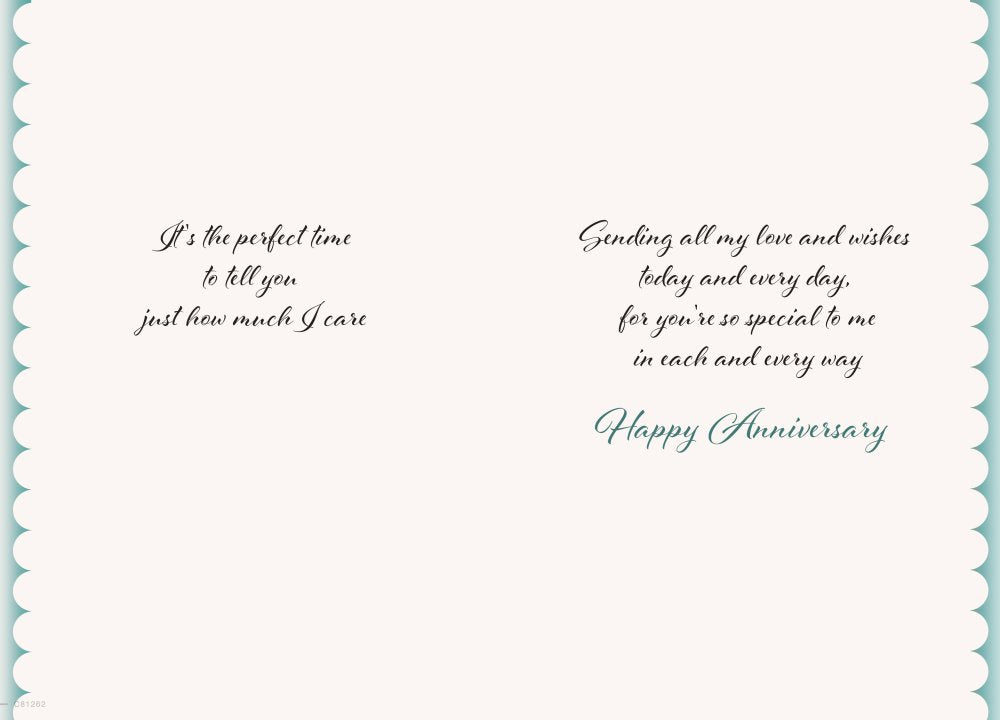 It's the perfect time
to tell you
just how much I care
Sending all my love and wishes
today and every day,
for you're so special to me
in each and every way
Happy Anniversary
C81262